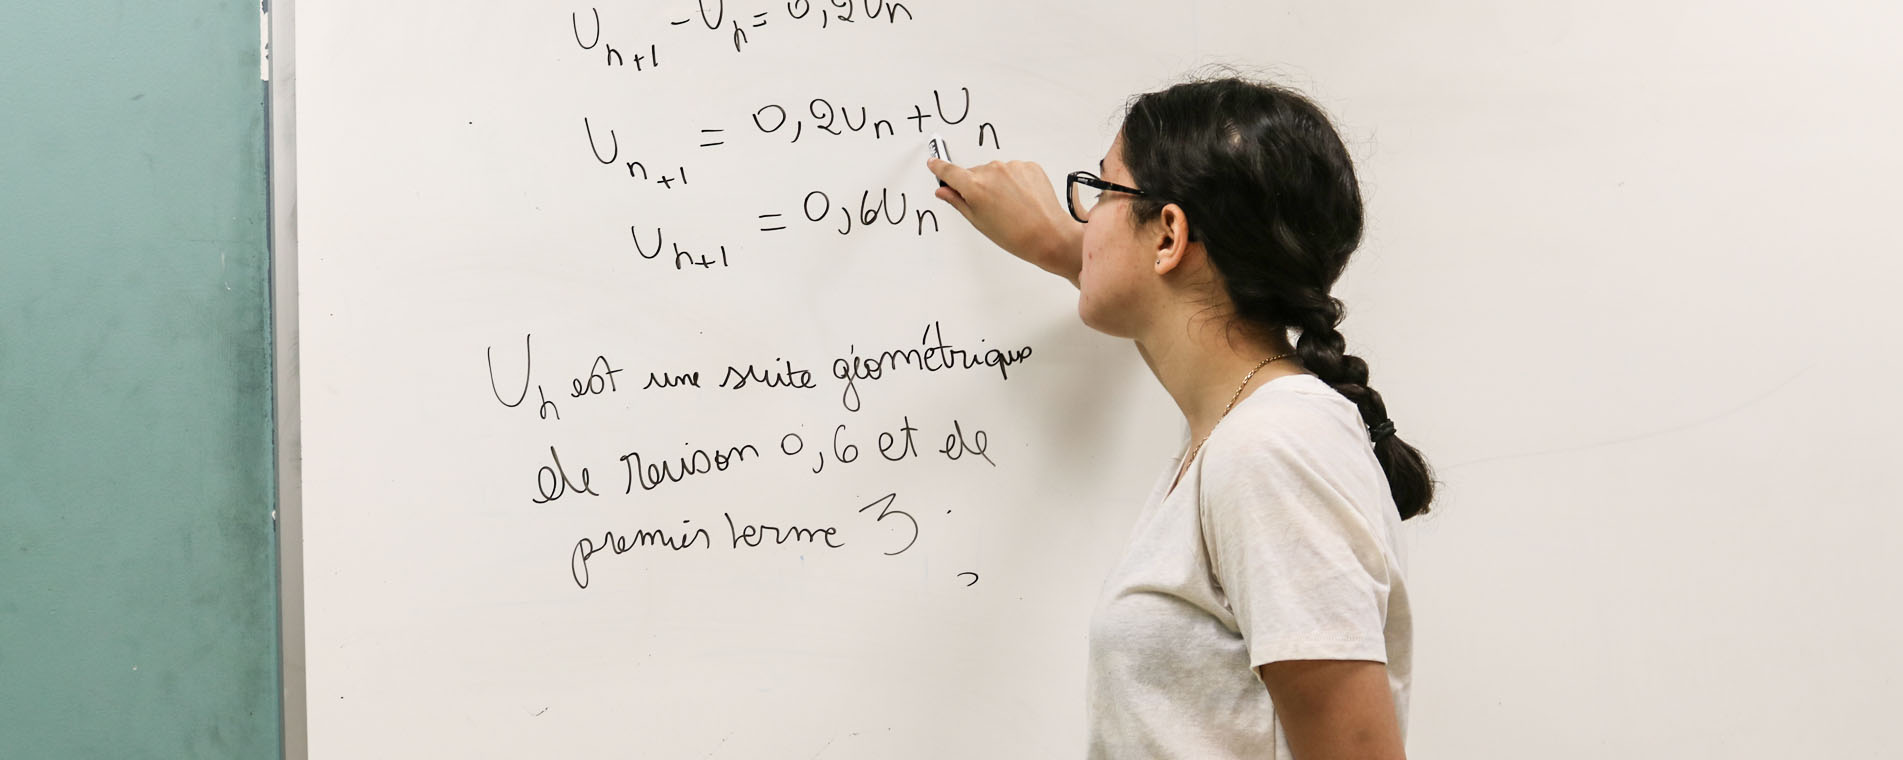 Un+1 - Un = 0,2Un
Un+1 = 0,2Un + Un
Un+1 = 0,6Un
Un est une suite géométrique
de raison 0,6 et de
premier terme 3.